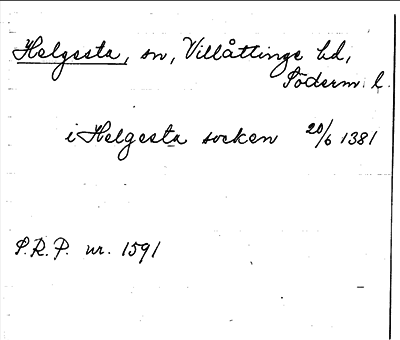 Helgesta, sn, Villåttinge hd,
Söderm. l.
i Helgesta socken 20/6 1381
S.R.P. nr. 1591